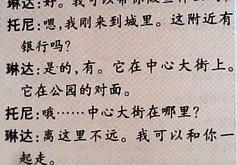 托尼:嗯,我刚来到城里。这附近有
银行吗?
琳达:是的,有。它在中心大街上。
它在公园的对面。
托尼:哦……中心大街在哪里?
琳达:离这里不远。我可以和你一
起走。